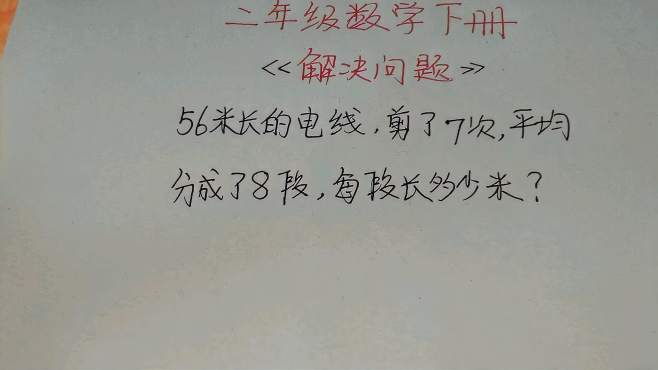 二年级数学下册
《解决问题》
56米长的电线,剪了7次,平均
分成了8段,每段长多少米?